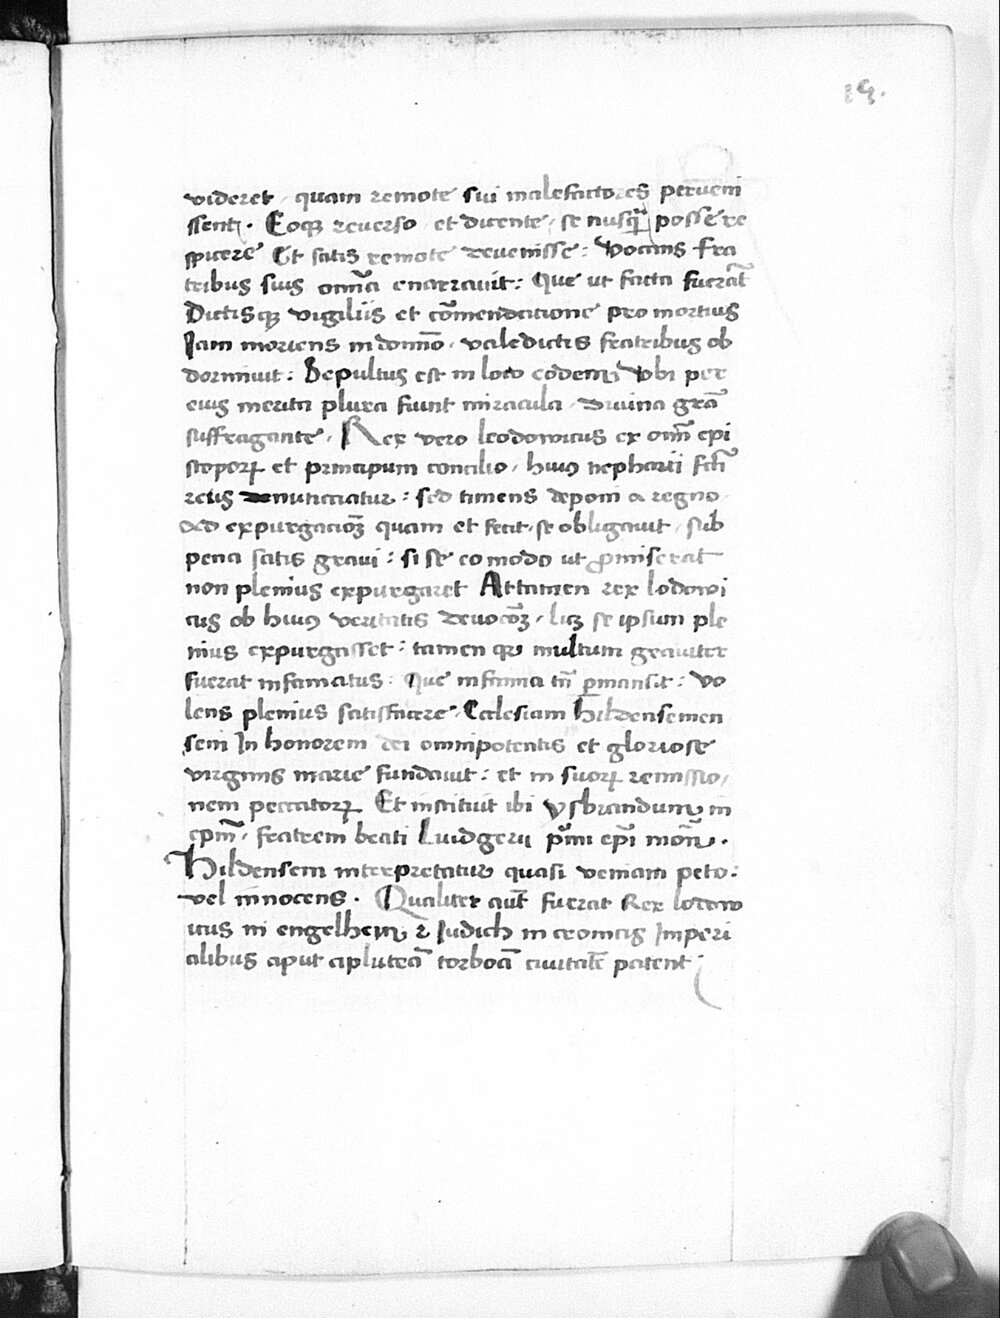 19.
videret, quam remote sui malefactores perveni
ssent. Eoque reverso et dicente, se nusq̄ posse re
spicere Et satis remote devenisse: vocans fra
tribus suis om̄ia enarravit: Que ut facta fuerāt
Dictisque vigiliis et cōmendatione pro mortuis
Jam moriens in domīo, valedictis fratribus ob
dormivit: Sepultus est in loco eodem Ubi per
eius merita plura fiunt miracula, divina grā
suffragante, Rex vero leodowicus ex om̄i epi
scoporꝝ et principum concilio, huiꝰ nepharii fcī
reus denunciatur: sed timens deponi a regno
ad expurgacioꝫ quam et fecit, se obligavit, sub
pena satis gravi: si se eo modo ut ꝓmiserat
non plenius expurgaret Attamen rex lodowi
cus ob huiꝰ veritatis devocōꝫ, licꝫ se ipsum ple
nius expurgasset: tamen quia multum graviter
fuerat infamatus: Que infamia tn̄ ꝑmansit: vo
lens plenius satisfacere, Ecclesiam hildensemen
sem In honorem dei omnipotentis et gloriose
virginis marie fundavit: et in suorꝝ remissio,
nem peccatorꝝ Et instituit ibi ysbrandum in
epm̄, fratrem beati Luidgerii pͥmi epī mōn̄.
Hildensem interpretatur quasi veniam peto:
vel innocens. Qualiter aūt fuerat Rex lodow
icus in engelhem ꝛ Judich in cronicis Imperi
alibus aput civitatē patent